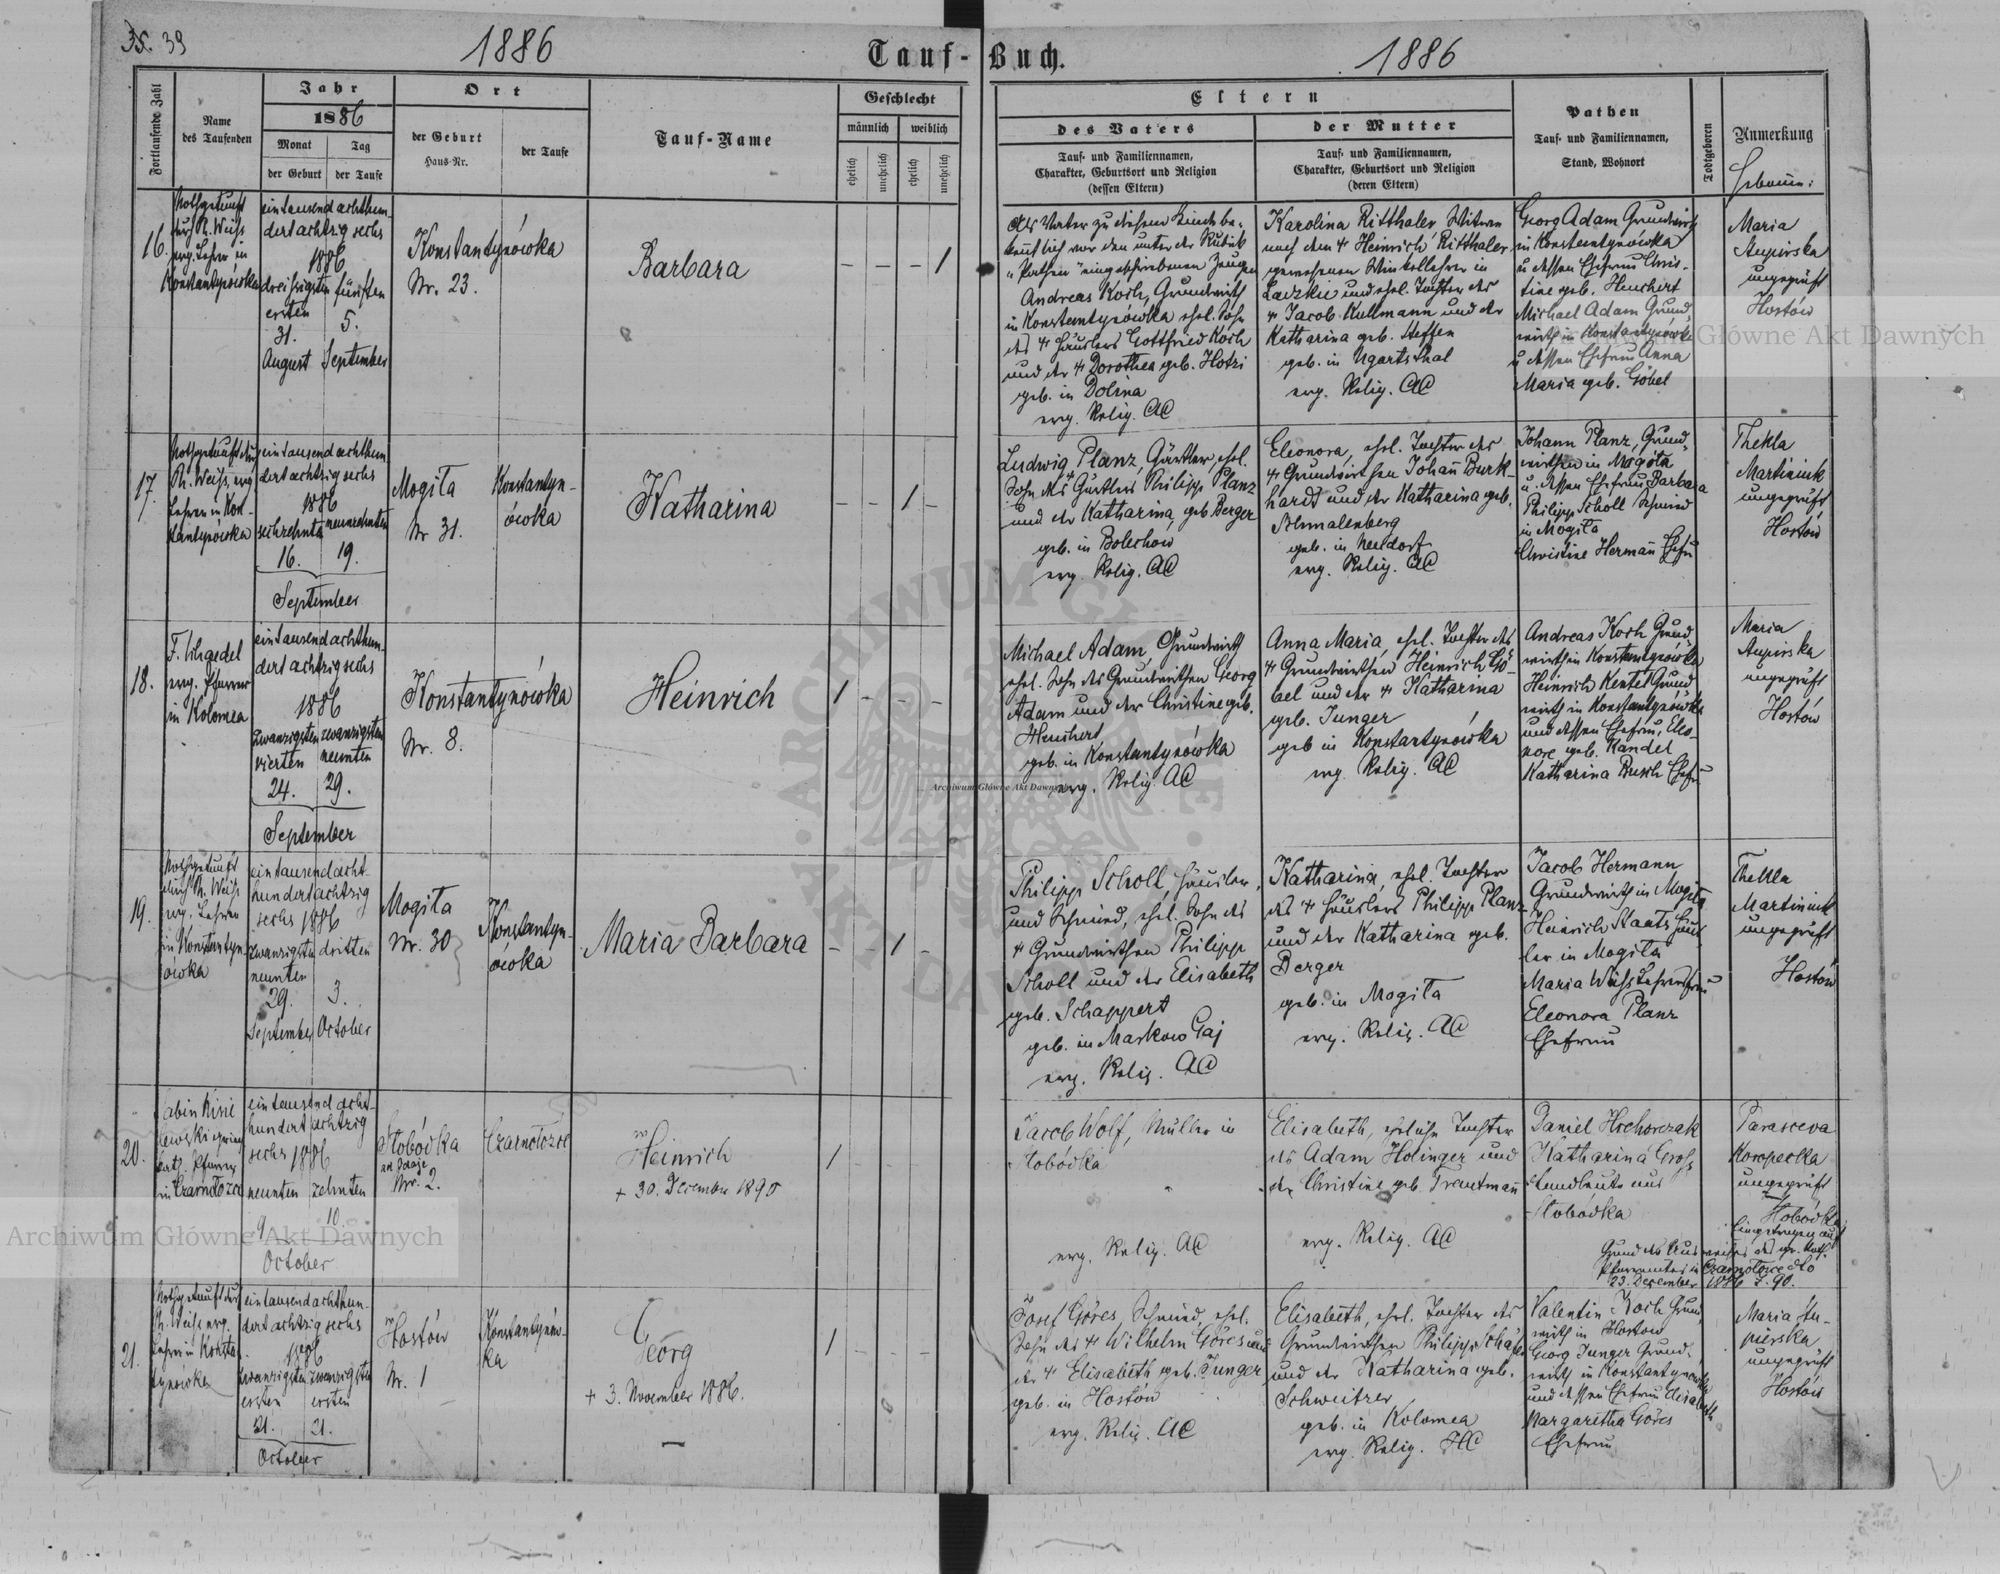 39
1886
Tauf-Buch.
1886
Fortlaufende Zahl
Name
des Taufenden
Jahr
1886
Monat
Tag
der Geburt
der Taufe
Ort
der Geburt
Haus-Nr.
der Taufe
Tauf-Name
Geschlecht
männlich
weiblich
ehelich
unehelich
ehelich
unehelich
Eltern
des Vaters
Tauf- und Familiennamen,
Charakter, Geburtsort und Religion
(dessen Eltern)
der Mutter
Tauf- und Familiennamen,
Charakter, Geburtsort und Religion
(deren Eltern)
Pathen
Tauf- und Familiennamen,
Stand, Wohnort
Todtgeboren
Anmerkung
Hebamme:
16.
Nothgetauft
durch Ph. Weiss
evg. Lehrer in
Konstantynówka
eintausend achthun-
dert achtzig sechs
1886
dreissigsten fünften
ersten
31. 5.
August September
Konstantynówka
Nr. 23.
Barbara
— — — 1
Als Vater zu diesem Kinde be-
kennt sich vor den unter der Rubrik
"Pathen" eingeschriebenen Zeugen
Andreas Koch, Grundwirth
in Konstantynówka ehel. Sohn
des Häuslers Gottfried Koch
und der Dorothea geb. Hotzi
geb. in Dolina
evg. Relig. AC
Karolina Ritthaler, Witwe
nach dem Heinrich Ritthaler
gewesenen Winkellehrer in
Ladzkie und ehel. Tochter des
Jacob Kullmann und der
Katharina geb. Steffen
geb. in Ugartsthal
evg. Relig. AC
Georg Adam Grundwirth
in Konstantynówka
u dessen Ehefrau Chris-
tine geb. Heuchert
Michael Adam Grund-
wirth in Konstantynówka
u dessen Ehefrau Anna
Maria geb. Göbel
Maria
Stupirska
ungeprüft
Hostów
17.
Nothgetauft durch
Ph. Weiss, evg
Lehrer in Kon-
stantynówka
eintausend achthun-
dert achtzig sechs
1886
sechzehnten neunzehnten
16. 19.
September
Mogiła
Nr 31.
Konstantyn-
ówka
Katharina
— — 1 —
Ludwig Planz, Gärtler, ehel.
Sohn des Gärtlers Philipp Planz
und der Katharina, geb Berger
geb. in Bolechow
evg. Relig. AC
Eleonora, ehel. Tochter des
Grundwirthen Johann Burk-
hardt und der Katharina geb.
Blumalenberg
geb. in Neudorf
evg. Relig. AC
Johann Planz, Grund-
wirthen in Mogiła
u. dessen Ehefrau Barbara
Philipp Scholl Schmied
in Mogiła
Christine Hermann Ehefrau
Thekla
Martiniuk
ungeprüft
Hostów
18.
F. Schaedel
evg. Pfarrer
in Kolomea
eintausend achthun-
dert achtzig sechs
1886
zwanzigsten zwanzigsten
vierten neunten
24. 29.
September
Konstantynówka
Nr. 8.
Heinrich
1 — — —
Michael Adam, Grundwirth
ehel. Sohn des Grundwirthen Georg
Adam und der Christine geb.
Heuchert
geb. in Konstantynówka
evg. Relig. AC
Anna Maria, ehel. Tochter des
Grundwirthen Heinrich Gö-
bel und der Katharina
geb. Junger
geb in Konstantynówka
evg. Relig. AC
Andreas Koch Grund-
wirth in Konstantynówka
Heinrich Kentel Grund
wirth in Konstantynówka
und dessen Ehefrau, Eleo-
nore geb. Kandel
Katharina Busch Ehefrau
Maria
Stupirska
ungeprüft
Hostów
19.
Nothgetauft
durch Ph. Weiss
evg. Lehrer
in Konstantyn
ówka
eintausend acht-
hundert achtzig
sechs 1886
zwanzigsten dritten
neunten
29. 3.
September October
Mogiła
Nr. 30
Konstantyn-
ówka
Maria Barbara
— — 1 —
Philipp Scholl, Häusler,
und Schmied, ehel. Sohn des
Grundwirthen Philipp
Scholl und der Elisabeth
geb. Schappert
geb. in Markow Gaj
evg. Relig. AC
Katharina, ehel. Tochter
des Häuslers Philipp Planz
und der Katharina geb.
Berger
geb. in Mogiła
evg. Relig. AC
Jacob Hermann
Grundwirth in Mogiła
Heinrich Staats Häus-
ler in Mogiła
Maria Weiss Lehrersfrau
Eleonora Planz
Ehefrau
Thekla
Martiniuk
ungeprüft
Hostów
20.
kath. Pfarrer
in Czarnołozce
eintausend acht-
hundert achtzig
sechs 1886
neunten zehnten
9 10.
October
Słobódka
Nr. 2.
Czarnołozce
Heinrich
+ 30. December 1890
1
Jacob Wolf, Müller in
Słobódka
evg. Relig. AC
Elisabeth, eheliche Tochter
des Adam Holinger und
der Christine geb. Trautmann
evg. Relig. AC
Daniel Hrehorczak
Katharina Gross
Landleute aus
Słobódka
Parasceva
Koropecka
ungeprüft
Słobódka
Eingetragen auf
Grund des Ausweises des gr. kath.
Pfarramtes in Czarnołozce dto
23. December 1886 Z. 90.
21.
Nothgetauft durch
Ph. Weiss evg.
Lehrer in Konstan-
tynówka
eintausend achthun-
dert achtzig sechs
1886
zwanzigsten zwanzigsten
ersten ersten
21. 21.
October
Hostów
Nr. 1
Konstantynów-
ka
Georg
+ 3. November 1886.
1 — — —
Josef Göres, Schmied, ehel.
Sohn des Wilhelm Göres und
der Elisabeth geb. Junger
geb. in Hostów
evg. Relig. AC
Elisabeth, ehel. Tochter des
Grundwirthen Philipp Schäfer
und der Katharina geb.
Schweitzer
geb. in Kolomea
evg. Relig. HC
Valentin Koch Grund-
wirth in Hostow
Georg Junger Grund-
wirth in Konstantynówka
und dessen Ehefrau Elisabeth
Margaritha Göres
Ehefrau
Maria Stu-
pirska
ungeprüft
Hostów
Archiwum Główne Akt Dawnych
Archiwum Główne Akt Dawnych
Archiwum Główne Akt Dawnych